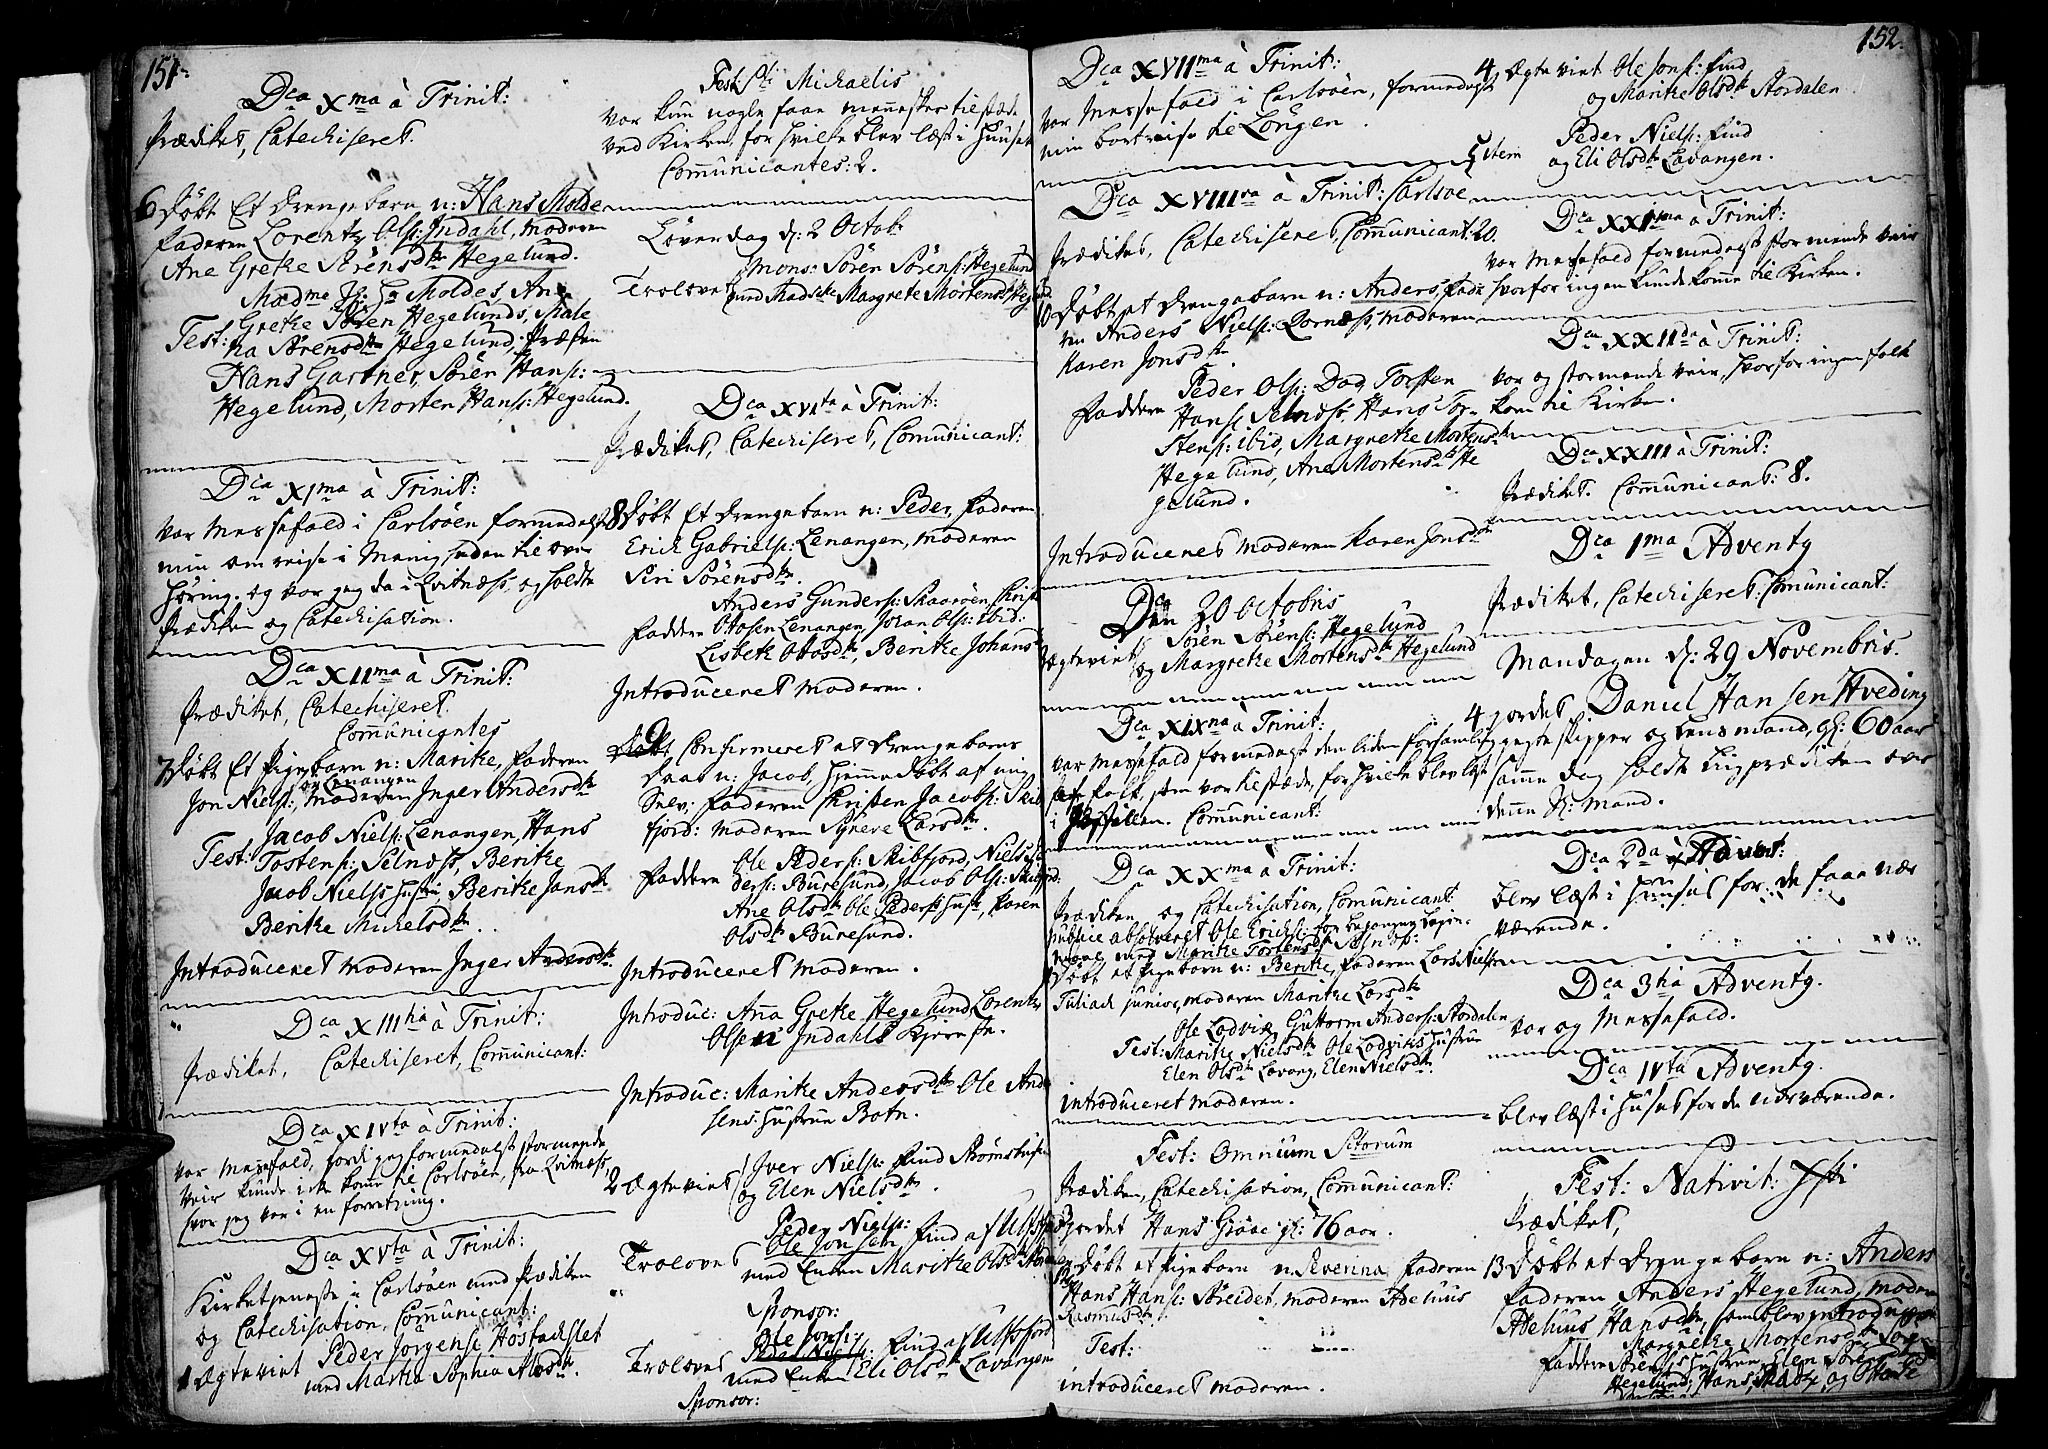 151.
Dca Xma à Trinit:
Prædiket, Catechiseret.
6 Døbt Et drengebarn n: Hans Molde
faderen Lorentz Ols: Indahl, moderen
Ane Grete Sörensdtr Hegelund.
Madme Moldes, Ane
Grethe Sören Hegelunds, Male
Test: na Sörensdtr Hegelund,
Hans Gartner, Sören Hans:
Hegelund, Morten Hans: Hegelund.
Dca XIma à Trinit:
Var Messefald i Carlsöen formedelst
min omreise i Menigheden til over
høring. og var jeg da i Qvitnæss, og holdte
Prædiken og Catechisation.
Dca XIIma à Trinit:
Prædiket, Catechiseret.
Com̄unicantes
7 Døbt Et Pigebarn n: Marite, faderen
Jon Niels: Lenangen, moderen Inger Andersdtr
Jacob Niels: Lenangen, Hans
Test: Tostens: Selnæss, Berite
Jacob Nielss hustr: Berite Jansdtr
Berite Mikelsdtr.
Introduceret moderen Inger Andersdtr
Dca XIIItia à Trinit:
Prædiket, Catechiseret, Com̄unicant:
Dca XIVta à Trinit:
var Messefald, fordi jeg formedelst stormende
veir kunde icke kom̄e til Carlsöen, fra Qvitnæss,
hvor jeg var i en forretning.
Dca XVta à Trinit:
Kirketjeneste i Carlsöen med Prædiken
og Catechisation, Com̄unicant:
1 Ægteviet Peder Jörgens: Höstadslet
med Marta Sophia Alsdtr.
Fest: Sti Michaelis
Var kun nogle faae mennesker tilstæde
ved Kirken, for hvilke blev læst i huuset
Com̄unicantes: 2.
Löverdag d: 2 Octobr
Mons: Sören Sörens: Hegelund
Trolovet med Madslle Margrete Mortensdtr Hegelund
Dca XVIta à Trinit:
Prædiket, Catechiseret, Com̄unicant:
8 Døbt Et drengebarn n: Peder, faderen
Erich Gabriels: Lenangen, moderen
Siri Sörensdtr.
Anders Gunders: Skaaröen, Christ
Faddere Ottosen Lenangen, Joran Ols: ibid:
Lisbeth Ottosdtr, Berite Johans
Introduceret moderen.
9 Confirmeret et drengebarns
daab n: Jacob, hjemmedøbt af
faderen Christen Jacobs: Skib
fjord: moderen Synneve Larsdtr.
Ole Peders: Skibfjord, Niels
Faddere ders: Buresund, Jacob Ols: Skibfjord:
Ane Olsdtr Ole Pederss hustr, Karen
Olsdtr Buresund.
Introduceret moderen.
Introduc: Anna Grete Hegelund, Lorentz
Olsen Indahls Kjereste.
Introduc: Marite Andersdtr Ole Ande
sens hustrue Botn.
2 Ægteviet Iver Niels: Find Strömshusen
og Elen Nielsdtr.
Peder Niels:
Ole Jonsen Find af Ulfsfjord
Trolovet med Enken Marite Olsdtr Stordalen
Sponsor:
Ole Jons:
Trolovet Peder Niels: Find af Ulfsfjord
med Enken Eli Olsdtr Lavangen
Sponsor:
152.
Dca XVIIma à Trinit:
Var Messefald i Carlsöen, formedelst
min bortreise til Longen.
Dca XVIIIva à Trinit: Carlsöe
Prædiket, Catechiseret, Com̄unicant: 20.
10 Døbt et drengebarn n: Anders, fade
ren Anders Niels: Qornæss, moderen
Karen Jonsdtr.
Peder Ols: Dad, Torsten
Faddere Hans: Selnæss, Hans Tor
stens: ibid, Margrete Mortensdtr
Hegelund, Ane Mortensdtr He
gelund.
Introduceret moderen Karen Jonsdtr
Den 20 Octobris
Sören Sörens: Hegelund
Ægteviet og Margrete Mortensdtr Hegelund
Dca XIXna à Trinit:
var Messefald formedelst den liden forsamling
folk, som var tilstæde, for hvilke blev læst
i Com̄unicant:
Dca XXma à Trinit:
Prædiken og Catechisation, Com̄unicant
publice absolveret Ole Erichs: for begangen
med Marite Torstensdtr Selnæss:
Døbt et Pigebarn n: Berite, faderen Lars Niels:
junior, moderen Marite Larsdtr
Ole Lodvig, Guttorm Anders: Stordalen
Test: Marite Nielsdtr Ole Lodvigs hustrue
Elen Olsdtr Lavang, Elen Nielsdtr.
introduceret moderen.
Fest: Omnium Storum
Prædiken, Catechisation, Com̄unicant:
Jordet Hans Graae gl: 76 aar.
Døbt et Pigebarn n: Severina, faderen
Hans Hans: Söreidet, moderen Adelius
Rasmusdtr.
Test:
introduceret moderen.
4 Ægteviet Ole Jons: Find
og Marite Olsdtr Stordalen.
5 item Peder Niels: Find
og Eli Olsdtr Lavangen.
Dca XXIma à Trinit:
var Messefald formedelst stormende veir
hvorfor ingen kunde kom̄e til Kirken.
Dca XXIIda à Trinit:
var og stormende veir, hvorfor ingen folk
kom til Kirken.
Dca XXIII à Trinit:
Prædiket. Com̄unicant: 8.
Dca 1ma Adventq
Prædiket, Catechiseret, Com̄unicant:
Mandagen d: 29 Novembris.
4 jordet Daniel Hansen Hveding
skipper og Lensmand, gl: 60 aar
samme dag holdte Liigprædiken over
denne Sl: Mand.
Dca 2da Advent:
blev læst i Huuset for de faae nær
værende.
Dca 3tia Adventq.
var og Messefald.
Dca IVta Adventq.
blev læst i Huset for de nærværende.
Fest: Nativit: Xsti
Prædiket,
13 Døbt et Drengebarn n: Anders
faderen Anders Hegelund, moder
Adelius Hansdtr, som blev introduceret
Margrete Mortensdtr Sören
Faddere Sörenss hustrue, Elen Sörensdtr
Hegelund, Hans